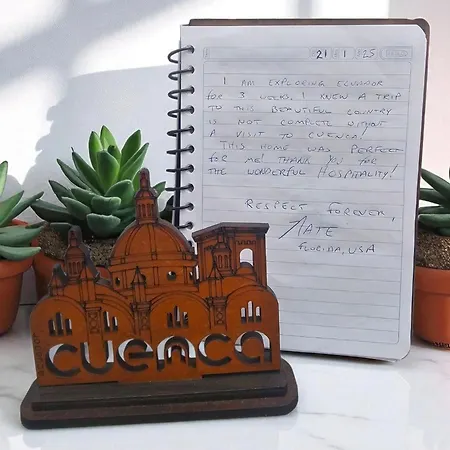 21 1 25
I AM EXPLORING ECUADOR
FOR 3 WEEKS. I KNEW A TRIP
TO THIS BEAUTIFUL COUNTRY
IS NOT COMPLETE WITHOUT
A VISIT TO CUENCA!
THIS HOME WAS PERFECT
FOR ME! THANK YOU FOR
THE WONDERFUL HOSPITALITY!
RESPECT FOREVER,
NATE
FLORIDA, USA
cuenca